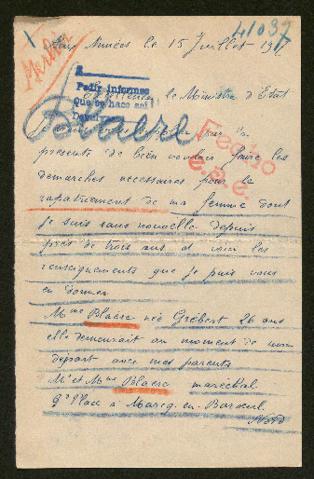 41037
Aux Armées le 15 Juillet 1917
A
Pedir informes
Que se hace así
Excellence le Ministre d'Etat
Blaere
par la
Hecho
présente de bien vouloir faire les
démarches nécessaires pour le
rapatriement de ma femme dont
je suis sans nouvelle depuis
près de trois ans et voici les
renseignements que je puis vous
en donner
Mme Blaere née Grébert 26 ans
elle demeurait au moment de mon
départ avec mes parents
Mr et Mme Blaere maréchal
Gde Place à Marcq-en-Baroeul
Nord